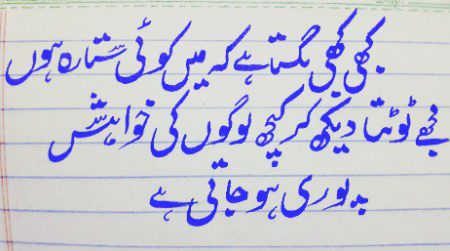 کبھی کبھی لگتا ہے کہ میں کوئی ستارہ ہوں
مجھے ٹوٹتا دیکھ کر کچھ لوگوں کی خواہش
پوری ہو جاتی ہے